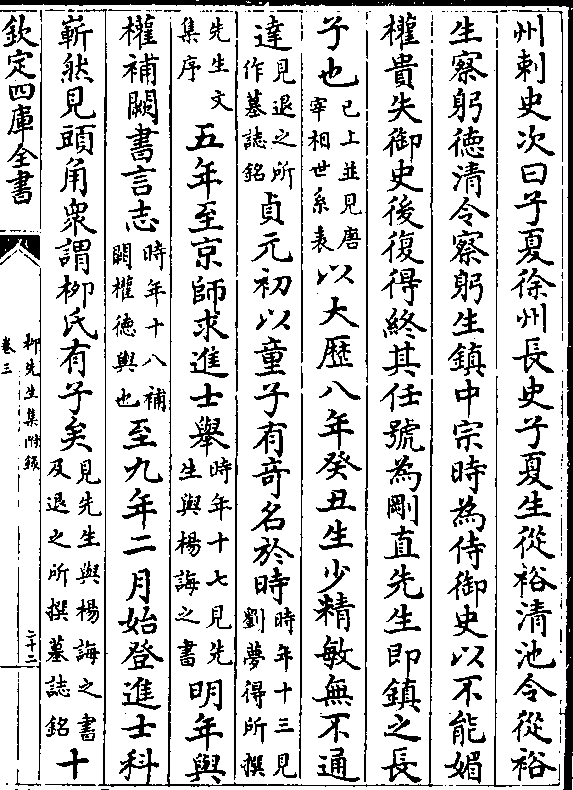 州刺史次曰子夏徐州長史子夏生從裕清池令從裕
生察躬徳清令察躬生鎮中宗時為侍御史以不能媚
權貴失御史後復得終其任號為剛直先生即鎮之長
子也已上並見唐宰相世系表以大歴八年癸丑生少精敏無不通
達見退之所作墓誌銘貞元初以童子有竒名於時時年十三見劉夢得所撰
先生文集序五年至京師求進士舉時年十七見先生與楊誨之書明年與
權補闕書言志時年十八補闕權德輿也至九年二月始登進士科
嶄然見頭角衆謂柳氏有子矣見先生與楊誨之書及退之所撰墓誌銘十
欽定四庫全書
柳先生集附録
卷三
二十二